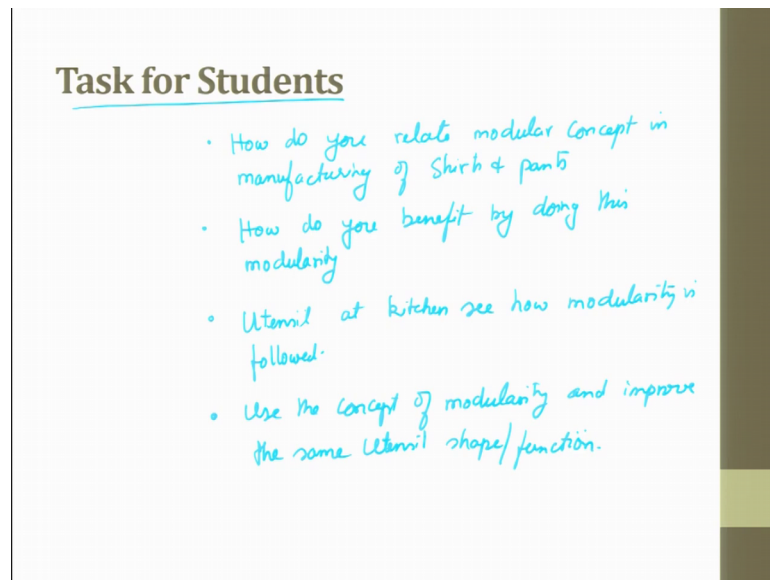 Task for Students
• How do you relate modular concept in
manufacturing of Shirts & pants
• How do you benefit by doing this
modularity
• Utensil at kitchen see how modularity is
followed.
• Use the concept of modularity and improve
the same Utensil shape/function.